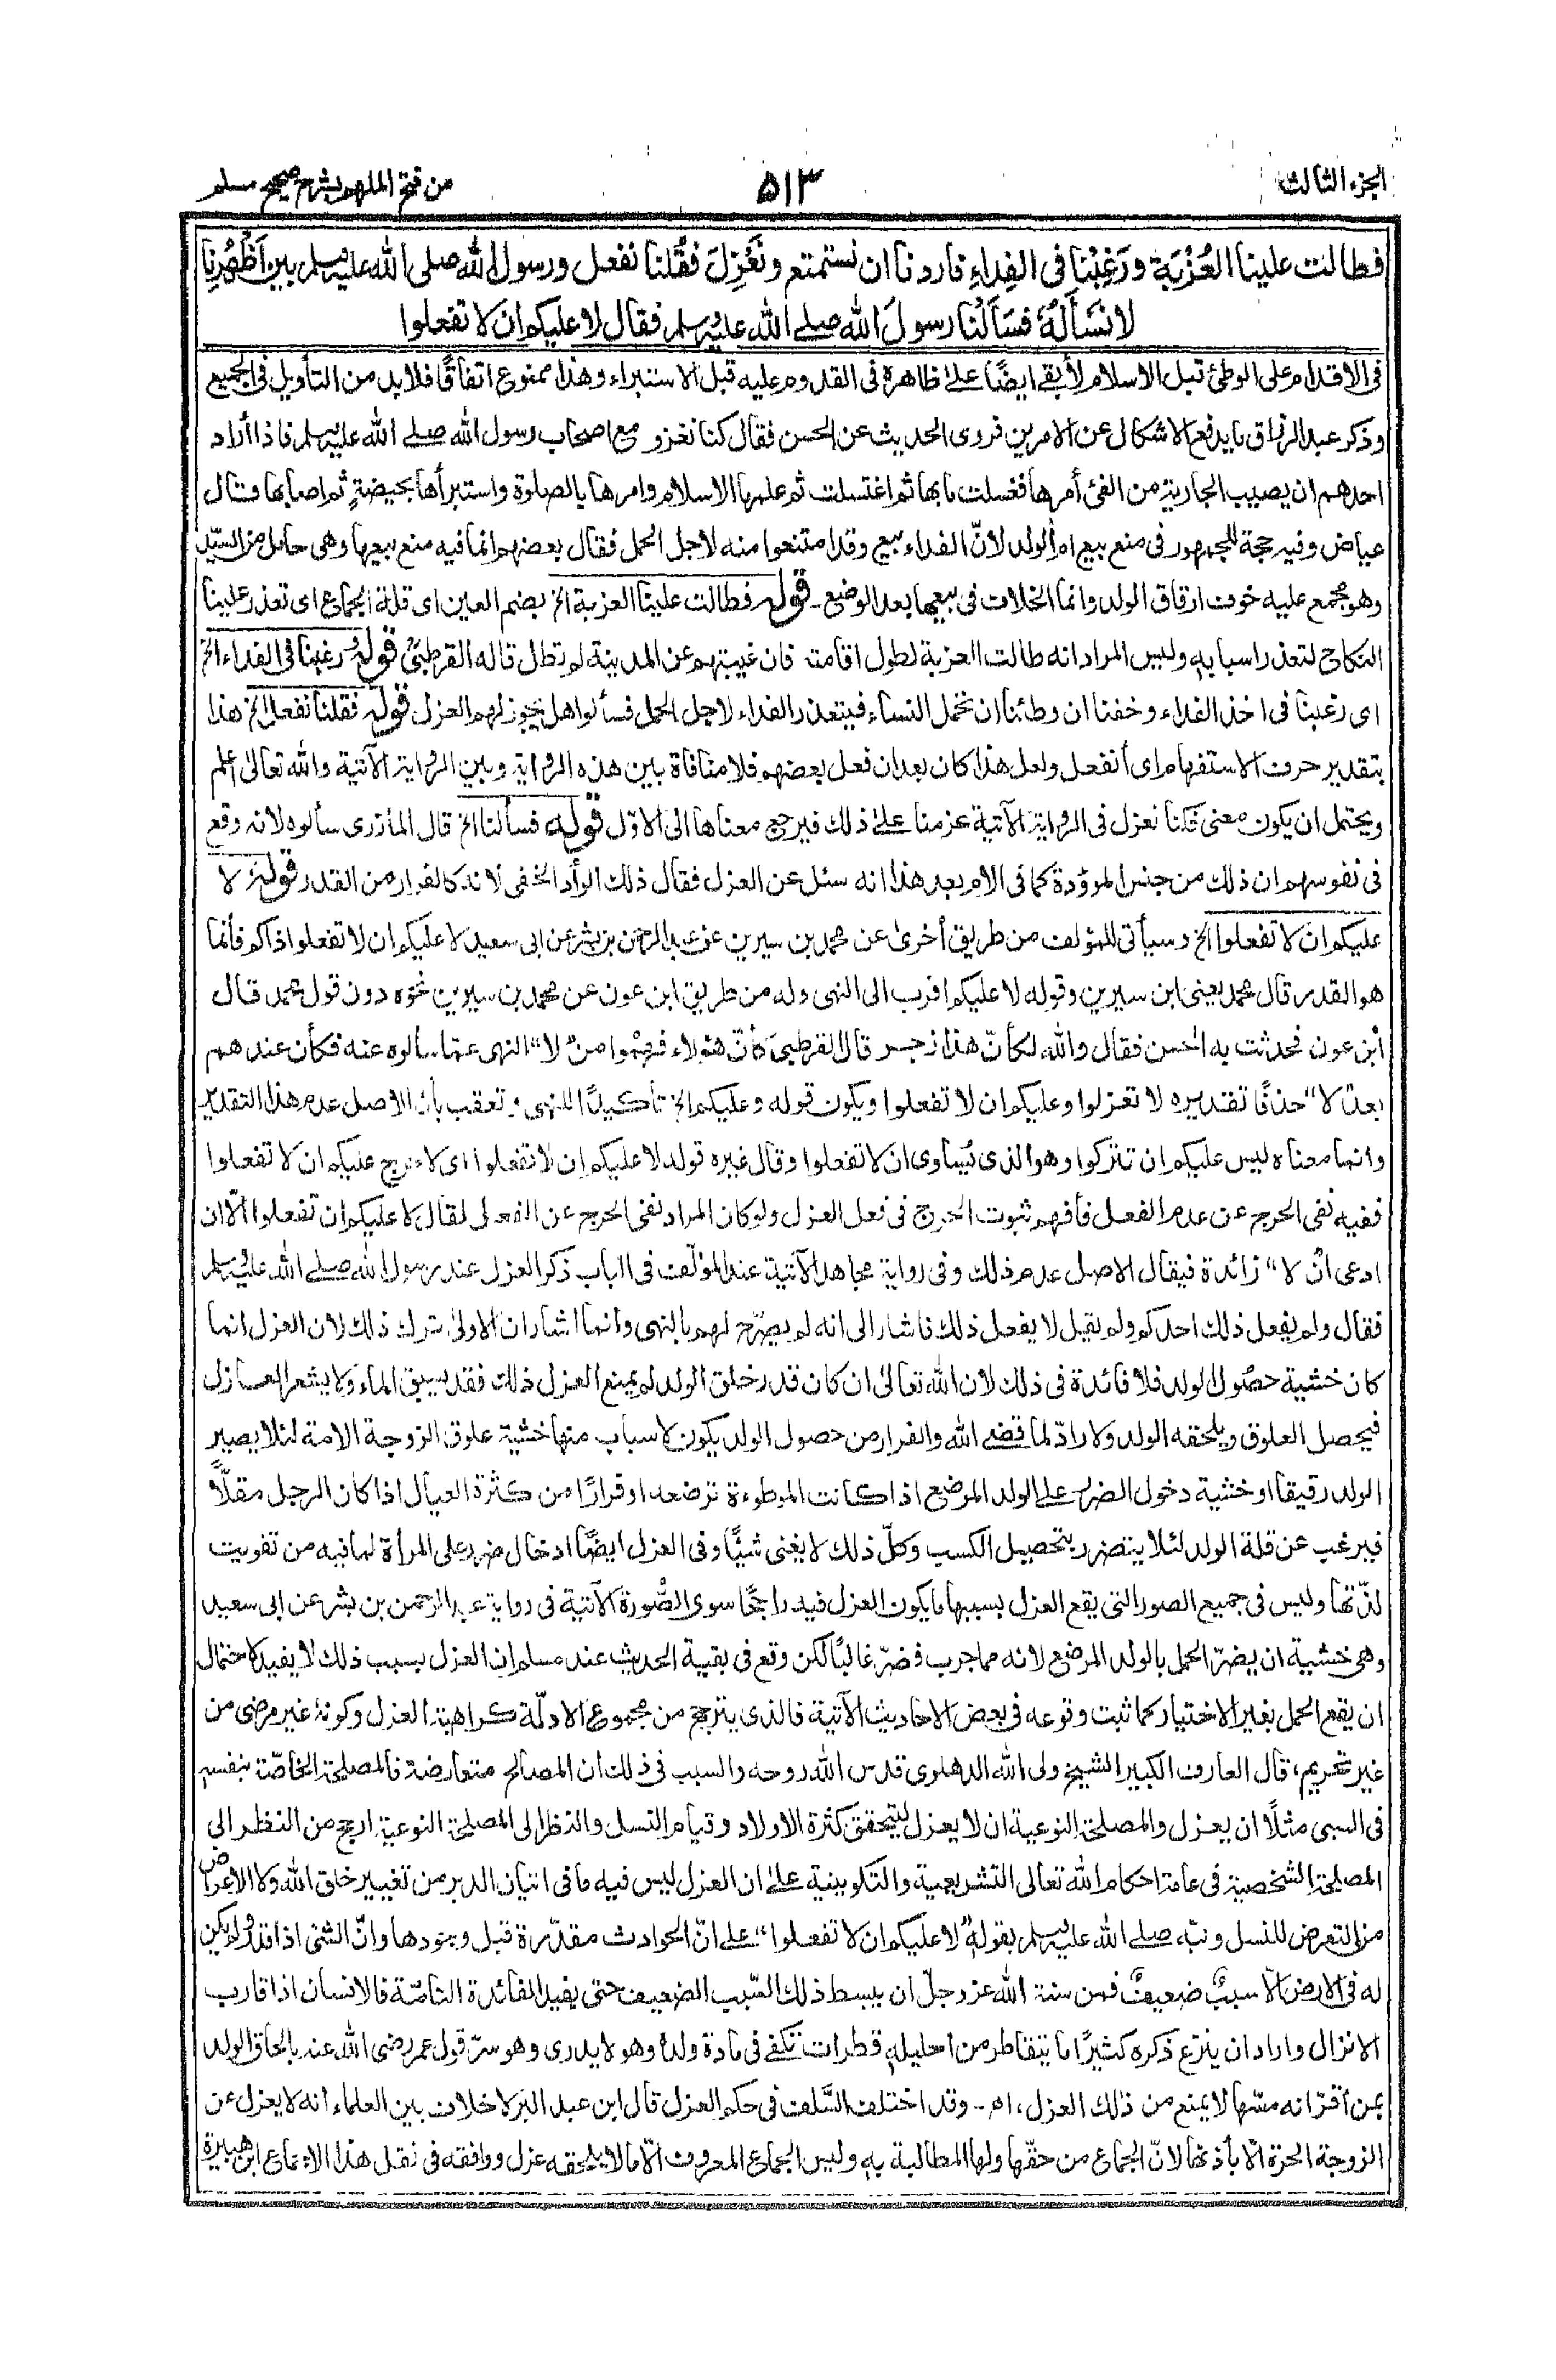 الجزء الثالث
٥١٣
من فتح الملهم بشرح صحيح مسلم
فطالت علينا العُزْبَة ورَغِبْنا فى الفِداءِ فاردنا ان نستمتع ونَعْزِلَ فقُلنا نفعل ورسول الله صلى الله عليه وسلم بين اَظْهُرِنا
لا نَسَأَلُهٗ فسَأَلْنا رسولَ الله صلے الله عليه وسلم فقال لا عليكم ان لا تفعلوا
فى الاقدام على الوطئ قبل الاسلام لا بقے ايضًا علىٰ ظاهره فى القدوم عليه قبل الاستبراء وهذا ممنوع اتفاقًا فلا بد من التأويل فى الجميع
وذكر عبد الرزاق ما يدفع الاشكال عن الامرين فروى الحديث عن الحسن فقال كنا نغزو مع اصحاب رسول الله صلے الله عليه وسلم فاذا أراد
احدهم ان يصيب الجارية من الفئ أمرها فغسلت ثيابها ثم اغتسلت ثم علمها الاسلام وامرها بالصلوة واستبرأها بحيضةٍ ثم اصابها وقال
عياض وفيه حجة للجمهور فى منع بيع ام الولد لانّ الفداء بيع وقد امتنعوا منه لاجل الحمل فقال بعضهم انما فيه منع بيعها وهى حامل من السيّد
وهو مجمع عليه خوف ارقاق الولد وانما الخلاف فى بيعها بعد الوضع۔ قوله فطالت علينا العزبة الخ بضم العين اى قلة الجماع اى تعذر علينا
النكاح لتعذر اسبابه وليس المراد انه طالت العزبة لطول اقامة فان غيبتهم عن المدينة لم تطل قاله القرطبىُّ قوله ورغبنا فى الفداء الخ
اى رغبنا فى اخذ الفداء وخفنا ان وطئنا ان تحمل النساء فيتعذر الفداء لاجل الحمل فسألوا هل يجوز لهم العزل قوله فقلنا نفعل الخ هذا
بتقدير حرف الاستفهام اى أنفعل ولعل هذا كان بعد ان فعل بعضهم فلا منافاة بين هذه الرواية وبين الرواية الآتية والله تعالىٰ اعلم
ويحتمل ان يكون معنى فكنا نعزل فى الرواية الآتية عزمنا علىٰ ذلك فيرجع معناها الى الاوّل قوله فسألنا الخ قال المازرى سألوه لانه وقع
فى نفوسهم ان ذلك من جنس الموؤدة كما فى الام بعد هذا انه سئل عن العزل فقال ذلك الوأد الخفى لانه كالفرار من القدر قولهٗ لا
عليكم ان لا تفعلوا الخ وسيأتى للمؤلف من طريق أخرىٰ عن محمد بن سيرين عن عبد الرحمٰن بن بشر عن ابى سعيد لا عليكم ان لا تفعلوا ذاكم فانما
هو القدر قال محمد يعنى ابن سيرين وقوله لا عليكم اقرب الى النهى وله من طريق ابن عون عن محمد بن سيرين نحوه دون قول محمد قال
ابن عون فحدثت به الحسن فقال والله لكأنّ هذا زجر قال القرطبى كأنّ هٰؤلاء فهموا من ”لا“ النهى عما سألوه عنه فكأن عندهم
بعد ”لا“ حذفًا تقديره لا تعزلوا وعليكم ان لا تفعلوا ويكون قوله وعليكم الخ تأكيدًا للنهى وتعقب بأن الاصل عدم هذا التقدير
وانما معناه ليس عليكم ان تتركوا وهو الذى يُساوى ان لا تفعلوا وقال غيره قوله لا عليكم ان لا تفعلوا اى لا حرج عليكم ان لا تفعلوا
ففيه نفى الحرج عن عدم الفعل فأفهم ثبوت الحرج فى فعل العزل ولو كان المراد نفى الحرج عن الفعل لقال لا عليكم ان تفعلوا الّا ان
ادعى انّ ”لا“ زائدة فيقال الاصل عدم ذلك وفى رواية مجاهد الآتية عند المؤلف فى الباب ذكر العزل عند رسول الله صلے الله عليه وسلم
فقال ولم يفعل ذلك احدكم ولم يقل لا يفعل ذلك فاشار الى انه لم يصرّح لهم بالنهى وانما اشار ان الاولىٰ ترك ذلك لان العزل انما
كان خشية حصول الولد فلا فائدة فى ذلك لان الله تعالىٰ ان كان قدر خلق الولد لم يمنع العزل ذلك فقد يسبق الماء ولا يشعر العازل
فيحصل العلوق ويلحقه الولد ولا رادّ لما قضے الله والفرار من حصول الولد يكون لاسباب منها خشية علوق الزوجة الامة لئلا يصير
الولد رقيقا او خشية دخول الضرر على الولد المرضع اذا كانت الموطوءة ترضعه او فرارًا من كثرة العيال اذا كان الرجل مقلًّا
فيرغب عن قلة الولد لئلا يتضرر بتحصيل الكسب وكلّ ذلك لا يغنى شيئًا وفى العزل ايضًا ادخال ضرر على المرأة لما فيه من تفويت
لذّتها وليس فى جميع الصور التى يقع العزل بسببها ما يكون العزل فيه راجحًا سوى الصُّورة الآتية فى رواية عبد الرحمن بن بشر عن ابى سعيد
وهى خشية ان يضرّ الحمل بالولد المرضع لانه مما جرب فضرّ غالبًا لكن وقع فى بقية الحديث عند مسلم ان العزل بسبب ذلك لا يفيد لاحتمال
ان يقع الحمل بغير الاختيار كما ثبت وقوعه فى بعض الاحاديث الآتية فالذى يترجح من مجموع الادلّة كراهية العزل وكونهٗ غير مرضى من
غير تحريم، قال العارف الكبير الشيخ ولى الله الدهلوى قدس الله روحه والسبب فى ذلك ان المصالح متعارضة فالمصلحة الخاصّة بنفسه
فى السبى مثلًا ان يعزل والمصلحة النوعية ان لا يعزل ليتحقق كثرة الاولاد وقيام النسل والنظر الى المصلحة النوعية ارجح من النظر الى
المصلحة الشخصية فى عامة احكام الله تعالى التشريعية والتكوينية علىٰ ان العزل ليس فيه ما فى اتيان الدبر من تغيير خلق الله ولا الاعراض
من التعرض للنسل ونبّه صلے الله عليه وسلم بقوله ”لا عليكم ان لا تفعلوا“ علے انّ الحوادث مقدّرة قبل وجودها وانّ الشئ اذا قدّر ولم يكن
له فى الارض الّا سببٌ ضعيفٌ فمن سنة الله عز وجلّ ان يبسط ذلك السّبب الضعيف حتى يفيد الفائدة التامّة فالانسان اذا قارب
الانزال واراد ان ينزع ذكره كثيرًا ما يتقاطر من احليلهٖ قطرات تكفے فى مادة ولدٖه وهو لا يدرى وهو سرّ قول عمر رضى الله عنه بالحاق الولد
بمن أقرّ انه مسّها لا يمنع من ذلك العزل، اھ۔ وقد اختلف السَّلف فى حكم العزل قال ابن عبد البر لا خلاف بين العلماء انه لا يعزل عن
الزوجة الحرّة الّا بأذنها لانّ الجماع من حقّها ولها المطالبة بهٖ وليس الجماع المعروف الّا ما لا يلحقه عزل ووافقه فى نقل هذا الاجماع ابن هبيرة